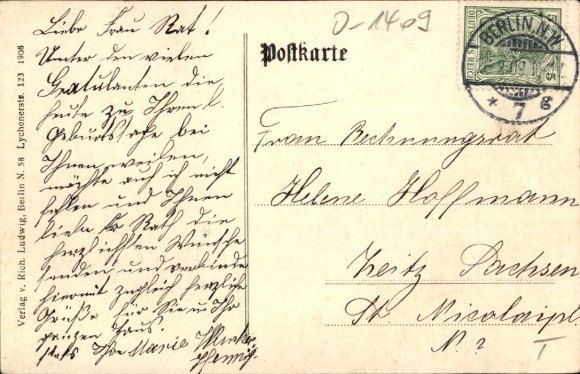 Liebe Frau Rat!
Unter den vielen
Gratulanten die
heute zu Ihrem l.
Geburtstage bei
Ihnen weilen,
möchte auch ich nicht
fehlen und Ihnen
liebe Fr Rath die
herzlichsten Wünsche
senden und verbinde
hiermit zugleich herzliche
Grüße für Sie u. Ihr
ganzes Haus.
stets Ihre Marie
Pfennig.
0-1409
Postkarte
DEUTSCHES REICH
5 5
BERLIN, N.W.
* 7 g
Frau Rechnungsrat
Helene Hoffmann
Zeitz Sachsen
St. Nicolaipl
N. 2
T
Verlag v. Rich. Ludwig, Berlin N. 58 Lychenerstr. 123 1908